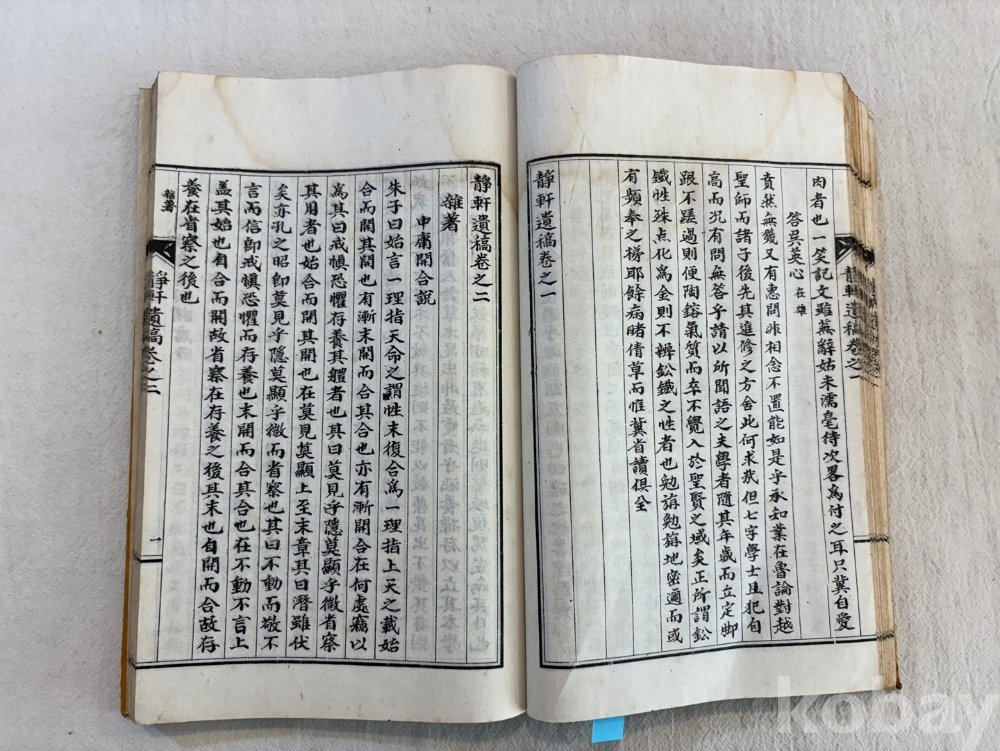 肉者也一笑記文雖蕪辭姑未濡毫待次畧爲付之耳只冀自愛
答吳英心在雄
賁然無幾又有惠問非相念不置能如是乎承知業在魯論對越
聖師而諸子後先其進修之方舍此何求哉但七字學士且犯自
高而况有問無答乎請以所聞語之夫學者隨其年歲而立定脚
跟不蹉過則便陶鎔氣質而卒不覺入於聖賢之域矣正所謂鈆
鐵性殊点化爲金則不辨鈆鐵之性者也勉旃勉旃地密邇而或
有頻奉之榜耶餘病睹倩草而惟冀省讀俱全
靜軒遺稿卷之一
靜軒遺稿卷之一
靜軒遺稿卷之二
雜著
中庸開合說
朱子曰始言一理指天命之謂性末復合爲一理指上天之載始
合而開其開也有漸末開而合其合也亦有漸開合在何處竊以
爲其曰戒愼恐懼存養其體者也其曰莫見乎隱莫顯乎微省察
其用者也始合而開其開也在莫見莫顯上至末章其曰潛雖伏
矣亦孔之昭卽莫見乎隱莫顯乎微而省察也其曰不動而敬不
言而信卽戒愼恐懼而存養也末開而合其合也在不動不言上
盖其始也自合而開故省察在存養之後其末也自開而合故存
養在省察之後也
雜著
靜軒遺稿卷之二
一
kobay